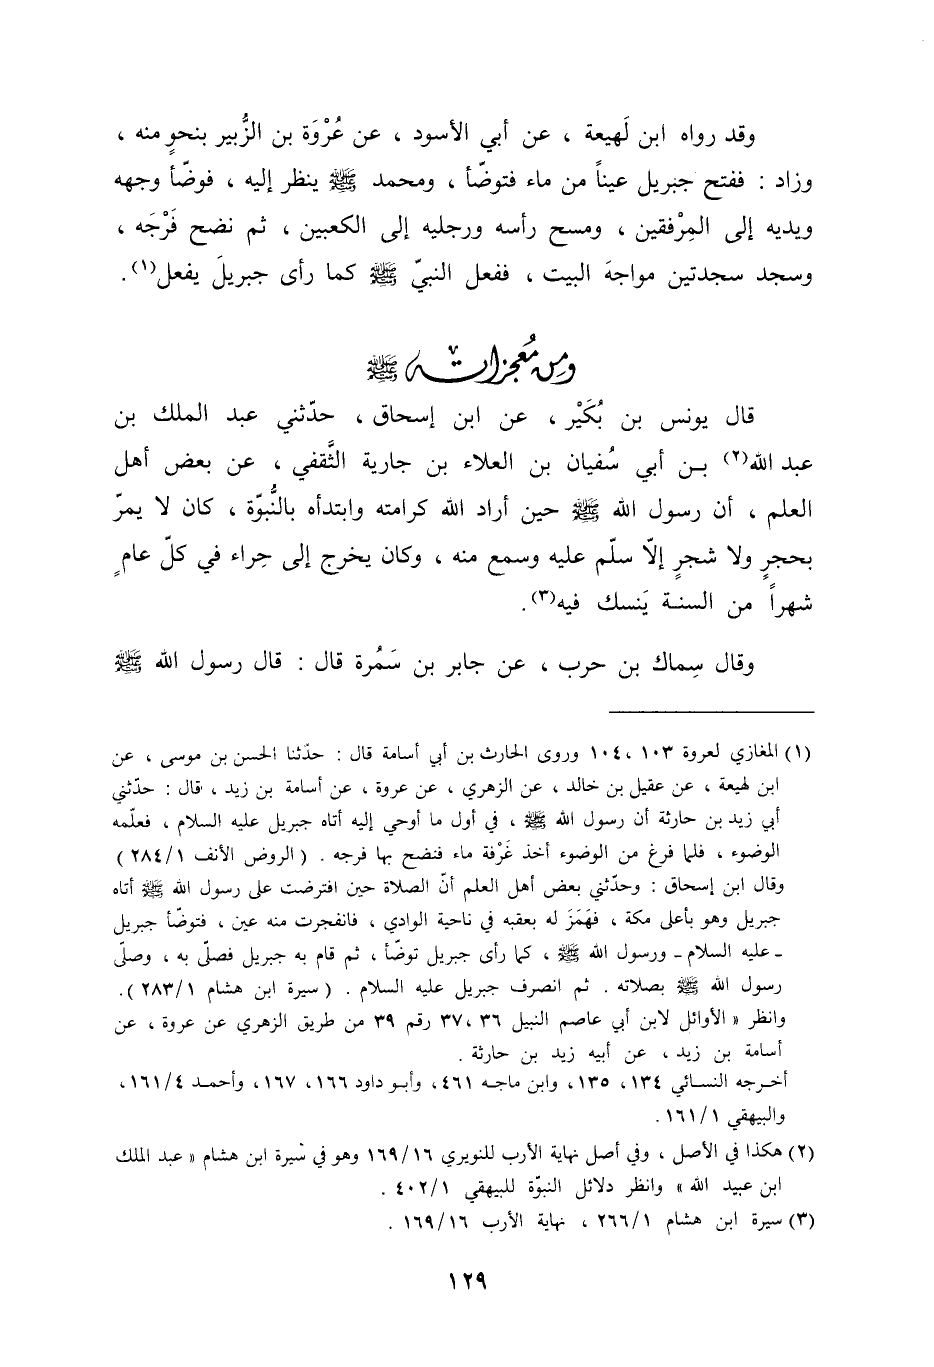 وقد رواه ابن لَهيعة ، عن أبي الأسود ، عن عُرْوَة بن الزُّبير بنحوٍ منه ،
وزاد : ففتح جبريل عيناً من ماء فتوضّأ ، ومحمد ﷺ ينظر إليه ، فوضّأ وجهه
ويديه إلى المِرْفقين ، ومسح رأسه ورجليه إلى الكعبين ، ثم نضح فَرْجَه ،
وسجد سجدتين مواجهَ البيت ، ففعل النبيّ ﷺ كما رأى جبريلَ يفعل(١).
ومِن مُعجزاته ﷺ
قال يونس بن بُكَيْر ، عن ابن إسحاق ، حدّثني عبد الملك بن
عبد الله(٢) بن أبي سُفيان بن العلاء بن جارية الثَّقفي ، عن بعض أهل
العلم ، أن رسول الله ﷺ حين أراد الله كرامته وابتدأه بالنُّبوّة ، كان لا يمرّ
بحجرٍ ولا شجرٍ إلّا سلّم عليه وسمع منه ، وكان يخرج إلى حِراء في كلّ عامٍ
شهراً من السنة يَنسك فيه(٣).
وقال سِماك بن حرب ، عن جابر بن سَمُرة قال : قال رسول الله ﷺ
(١) المغازي لعروة ١٠٣ ، ١٠٤ وروى الحارث بن أبي أسامة قال : حدّثنا الحسن بن موسى ، عن
ابن لهيعة ، عن عقيل بن خالد ، عن الزهري ، عن عروة ، عن أسامة بن زيد ، قال : حدّثني
أبي زيد بن حارثة أن رسول الله ﷺ ، في أول ما أوحي إليه أتاه جبريل عليه السلام ، فعلّمه
الوضوء ، فلما فرغ من الوضوء أخذ غَرْفة ماء فنضح بها فرجه . ( الروض الأنف ٢٨٤/١ )
وقال ابن إسحاق : وحدّثني بعض أهل العلم أنّ الصلاة حين افترضت على رسول الله ﷺ أتاه
جبريل وهو بأعلى مكة ، فهَمَزَ له بعقبه في ناحية الوادي ، فانفجرت منه عين ، فتوضّأ جبريل
ـ عليه السلام ـ ورسول الله ﷺ ، كما رأى جبريل توضّأ ، ثم قام به جبريل فصلّى به ، وصلّى
رسول الله ﷺ بصلاته . ثم انصرف جبريل عليه السلام . ( سيرة ابن هشام ٢٨٣/١ ).
وانظر « الأوائل لابن أبي عاصم النبيل ٣٦ ، ٣٧ رقم ٣٩ من طريق الزهري عن عروة ، عن
أسامة بن زيد ، عن أبيه زيد بن حارثة .
أخرجه النسائي ١٣٤ ، ١٣٥ ، وابن ماجه ٤٦١ ، وأبو داود ١٦٦ ، ١٦٧ ، وأحمد ١٦١/٤ ،
والبيهقي ١٦١/١ .
(٢) هكذا في الأصل ، وفي أصل نهاية الأرب للنويري ١٦٩/١٦ وهو في سيرة ابن هشام « عبد الملك
ابن عبيد الله » وانظر دلائل النبوّة للبيهقي ٤٠٢/١ .
(٣) سيرة ابن هشام ٢٦٦/١ ، نهاية الأرب ١٦٩/١٦ .
١٢٩